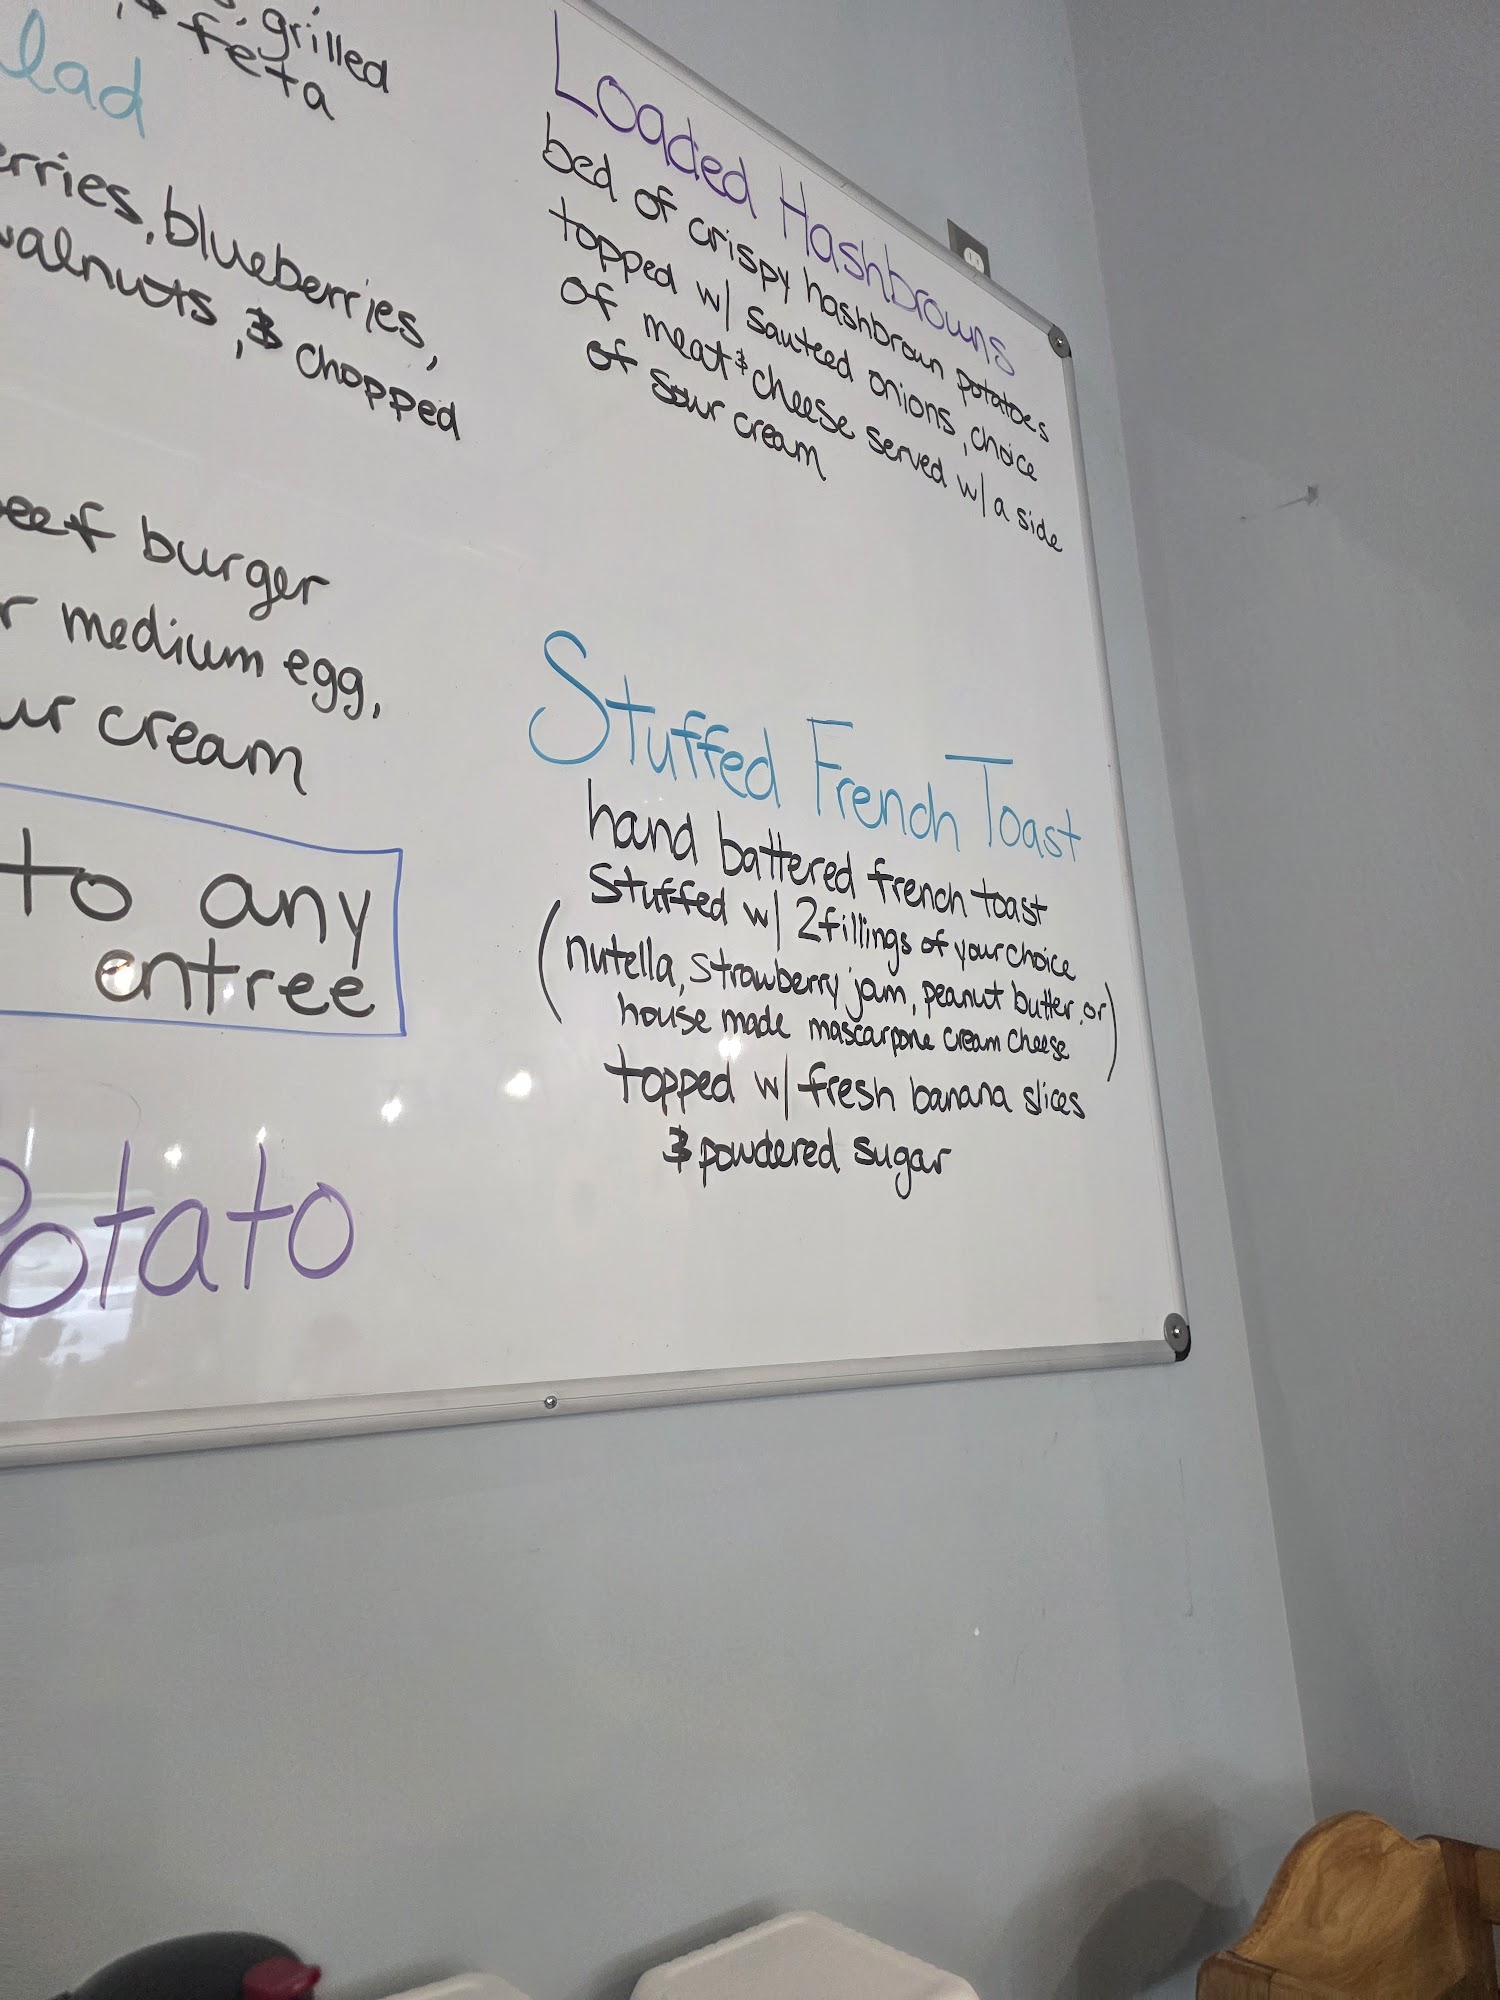 grilled
feta
lad
erries, blueberries,
walnuts, & chopped
eef burger
r medium egg,
ur cream
to any
entree
Potato
Loaded Hashbrowns
bed of crispy hashbroun potatoes
topped w/ sauteed onions, choice
of meat & cheese served w/ a side
of sour cream
Stuffed French Toast
hand battered french toast
Stuffed w/ 2 fillings of your choice
(nutella, strawberry jam, peanut butter, or
house made mascarpone cream cheese)
topped w/ fresh banana slices
& powdered sugar